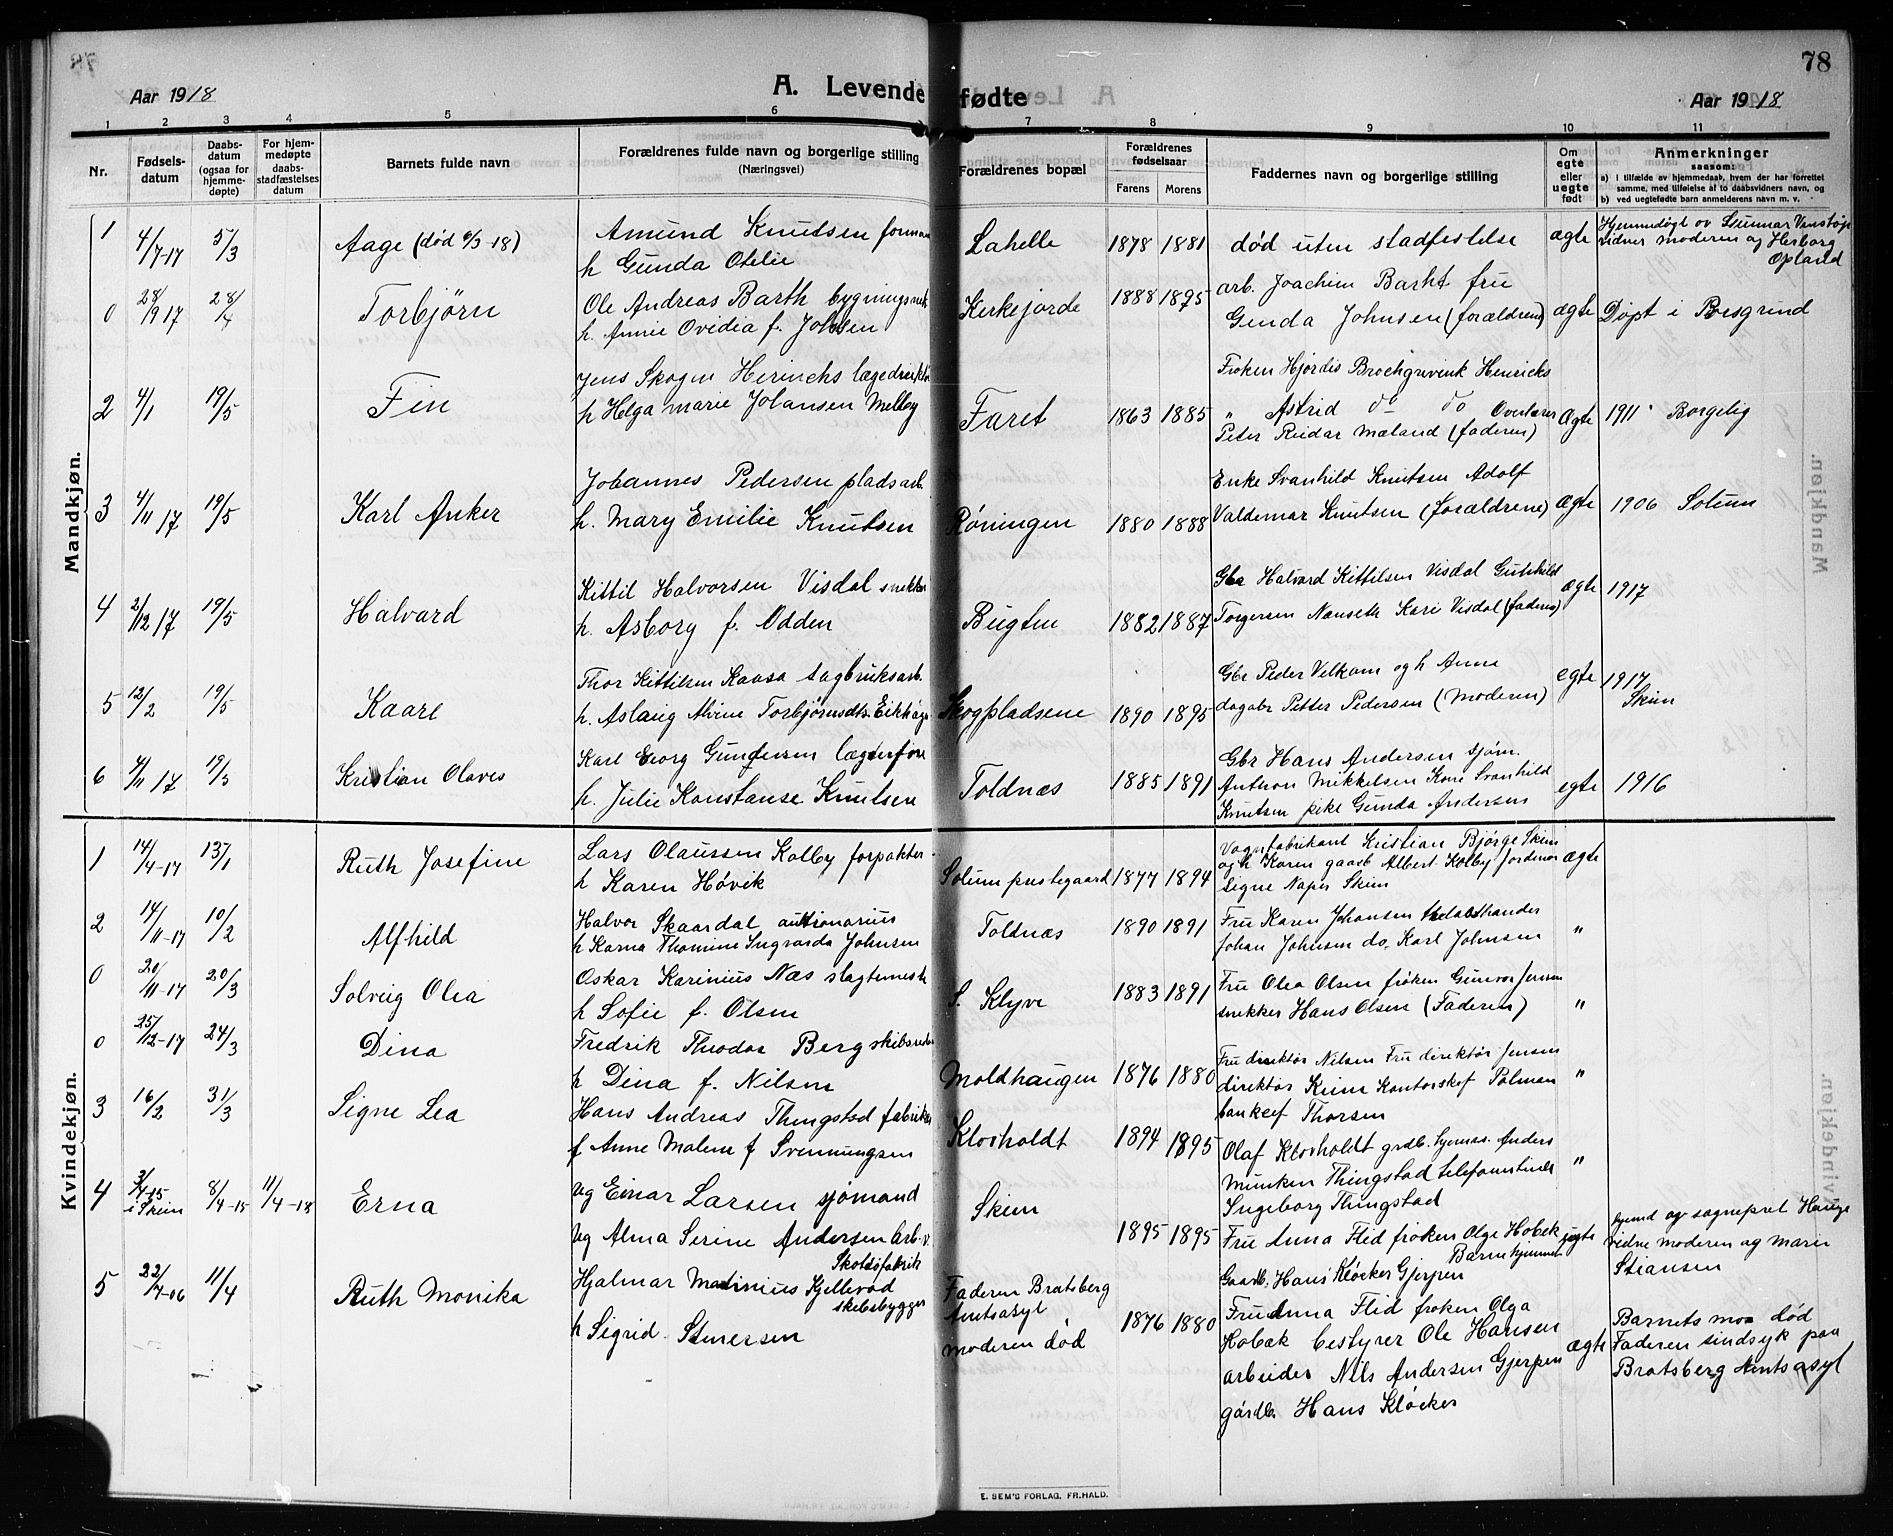 78
Aar 1918
A. Levende fødte
Aar 1918
1 2 3 4 5 6 7 8 9 10 11
Nr.
Fødsels-
datum
Daabs-
datum
(ogsaa for
hjemme-
døpte)
For hjem-
medøpte
daabs-
stadfæstelses
datum
Barnets fulde navn
Forældrenes fulde navn og borgerlige stilling
(Næringsvei)
Forældrenes bopæl
Forældrenes
fødselsaar
Farens Morens
Faddernes navn og borgerlige stilling
Om
egte
eller
uegte
født
Anmerkninger
saasom:
a) i tilfælde av hjemmedaab, hvem der har forrettet
samme, med tilføielse af to daabsvidners navn, og
b) ved uegtefødte barn anmelderens navn m. v.
Mandkjøn.
1 4/7-17 5/3 Aage (død 6/3-18)
Amund Knutsen forman
h Gunda Otelie
Lahelle 1878 1881
død uten stadfestelse
ægte
Hjemmedøgt ov Gunnar
vidner moderen og Herborg
Opland
0 28/9 17 28/4 Torbjørn
Ole Andreas Barth bygningsm
h. Annie Ovidia f. Johsen
Kirkejorde 1888 1895
arb. Joachim Barht fru
Genda Johnsen (forældrene)
ægte
Døpt i Porsgrund
2 4/1 19/5 Fin
Jens Skogen Hinrichs
h Helga marie Johansen Melby
Faret 1863 1885
Frøken Hjørdis Brochgrevink Henricks
" Astrid do do Overlærer
Peter Reidar Mæland (faderen)
Ægte
1911 Borgelig
3 4/11 17 19/5 Karl Anker
Johannes Pedersen pladsarb.
h. Mary Emilie Knutsen
Røningen 1880 1888
Enke Svanhild Knutsen Adolf
Valdemar Knutsen (forældrene)
Ægte
1906 Solum
4 2/12 17 19/5 Halvard
Kittil Halvorsen Visdal snekker
h. Asborg f. Odden
Bugten 1882 1887
Gbr Halvard Kittilsen Visdal Gunhild
Torgersen Nanseth Kari Visdal (faderen)
ægte
1917
5 12/2 19/5 Kaare
Thor Kittilsen Kaasa sagbruksarb.
h. Aslaug Alvine Torbjørnsdtr. Eikhaug
Skogpladsene 1890 1895
Gbr Peder Velkam og h Anne
dagabr Petter Pedersen (Moderen)
egte
1917
Skien
6 4/11 17 19/5 Kristian Olaves
Karl Georg Gundersen
h. Julie Konstanse Knutsen
Toldnæs 1885 1891
Gbr Hans Andersen sjøm.
Anthon Mikkelsen Kone Svanhild
Knutsen pike Gunda Andersen
egte
1916
Kvindekjøn.
1 14/4-17 13/1 Ruth Josefine
Lars Olaussen Kolby forpakter
h Karen Høvik
Solum prestegaard 1877 1894
Vognfabrikant Kristian Bjørge Skien
og h Karen gaarb Albert Kolby Jordmor
Signe Naper Skien
ægte
2 14/11-17 10/2 Alfhild
Halvor Skaardal auktionarius
h Karna Thomine Ingvarda Johnsen
Toldnæs 1890 1891
Fru Karen Johansen
Johan Johnsen do. Karl Johnsen
"
0 20/11-17 20/3 Solveig Olea
Oskar Karinius Næs slagtemest
h Sofie f. Olsen
S. Klyve 1883 1891
Fru Olea Olsen frøken Gunvor Jensen
snekker Hans Olsen (Faderen)
"
0 25/12-17 24/3 Dina
Fredrik Theodor Berg skibsreder
h Dina f. Nilsen
Moldhaugen 1876 1880
Fru direktør Nilsen Fru direktør Jensen
direktør Keim Kontorchef Polman
bankcef Thorsen
"
3 16/2 31/3 Signe Lea
Hans Andreas Thingstad fabriker
f Anne Malene f Svennungsen
Klovholdt 1894 1895
Olaf Klovholdt grdb. Anders
Munken Thingstad
Ingeborg Thingstad
"
4 3/4-15
i Skien 8/4-15 11/4-18 Erna
Ug Einar Larsen sjømand
Ug Alma Serine Andersen Arb.v.
Skotsøfabrik
Skien
1895 1895
Fru Anna Flid frøken Olga Hobæk
Barnehjemmet
Gaardb. Hans Kløcker Gjerpen
uegte
hjemd ov sognepret Hauge
vidne moderen og Marie
Stiansen
5 22/4-06 11/4 Ruth Monika
Hjalmar Matinius Kjellevod
skibsbygger
h Sigrid Simersen
Faderen Bratsberg
Amtsasyl
moderen død
1876 1880
Fru Anna Flid frøken Olga
Hobæk bestyrer Ole Hansen
arbeider Nils Andersen Gjerpen
gårdb. Hans Kløcker
ægte
Barnets mor død
Faderen sindsyk paa
Bratsberg Amtsasyl
E. SEM'S FORLAG, FR.HALD.